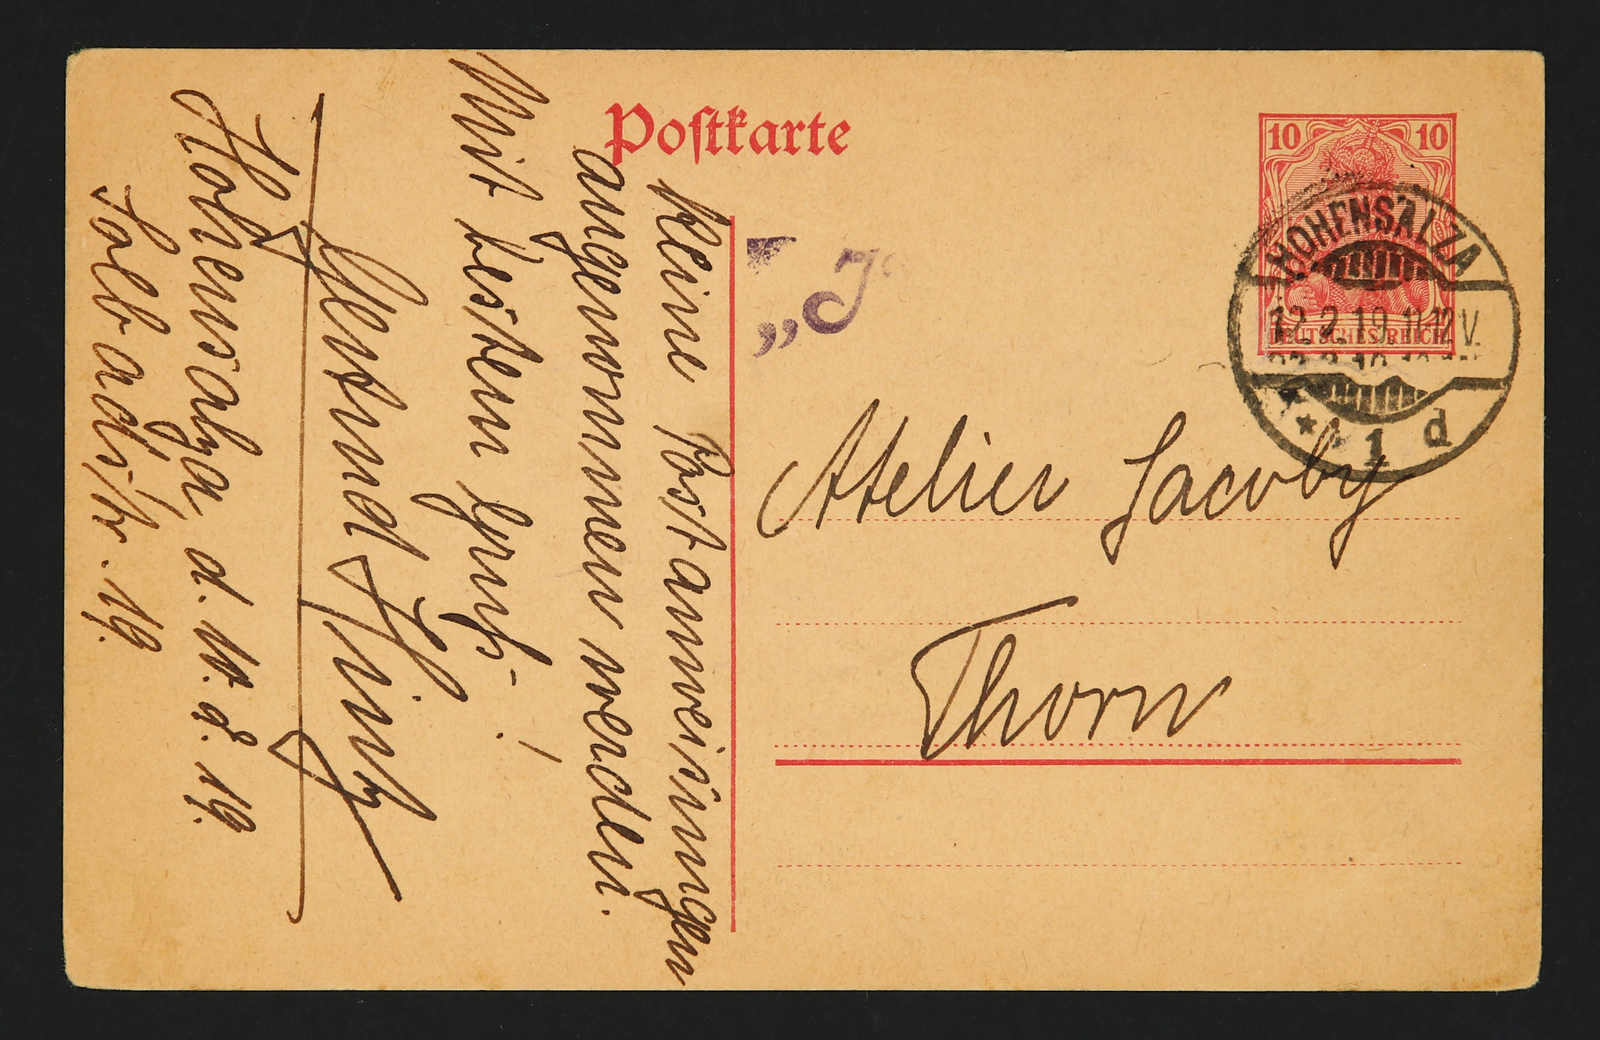 Postkarte
10 10
DEUTSCHES REICH
HOHENSALZA
12.2.19.11-12V.
* 1 d
„J
Atelier Jacoby
Thorn
Kleine Postanweisungen
angenommen werden.
Mit bestem Gruß!
Gertrud Hintz
Hohensalza, d. 11. 2. 19.
Solbadstr. 19.